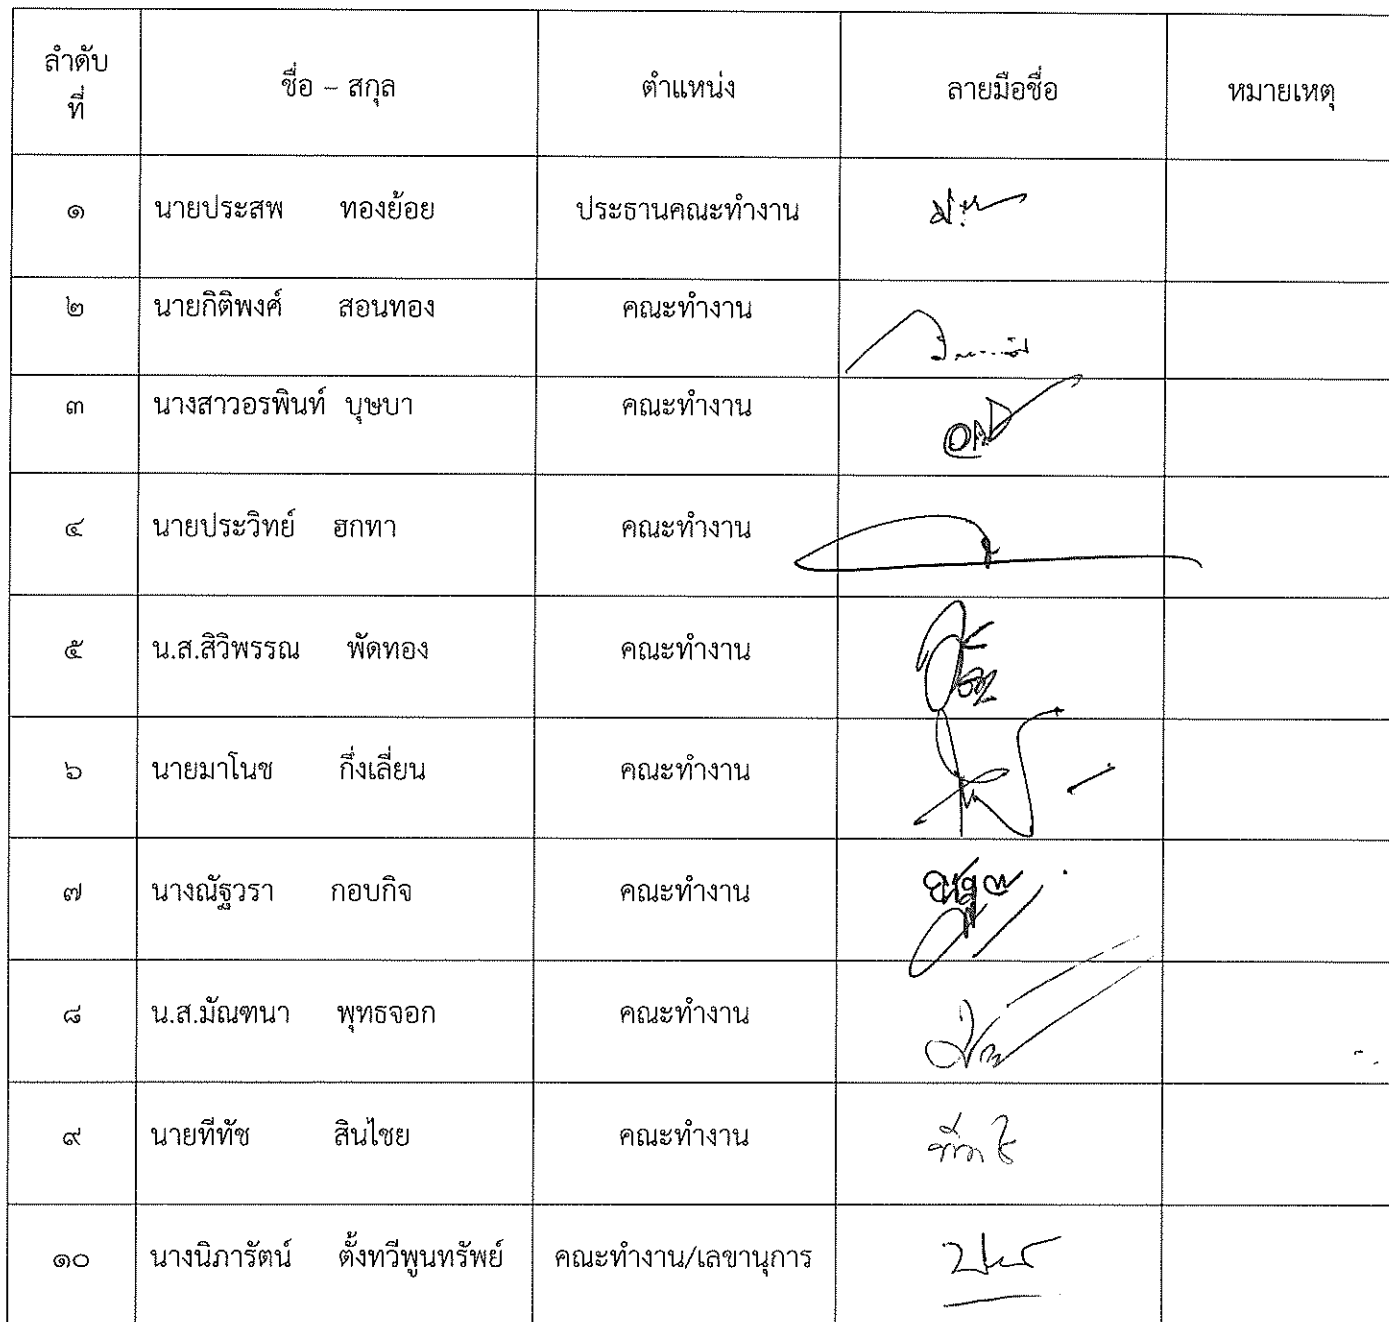 ลำดับ
ที่
ชื่อ – สกุล ตำแหน่ง ลายมือชื่อ หมายเหตุ
๑ นายประสพ ทองย้อย ประธานคณะทำงาน
๒ นายกิติพงศ์ สอนทอง คณะทำงาน
๓ นางสาวอรพินท์ บุษบา คณะทำงาน
๔ นายประวิทย์ ฮกทา คณะทำงาน
๕ น.ส.สิวิพรรณ พัดทอง คณะทำงาน
๖ นายมาโนช กึ่งเลี่ยน คณะทำงาน
๗ นางณัฐวรา กอบกิจ คณะทำงาน
๘ น.ส.มัณฑนา พุทธจอก คณะทำงาน
๙ นายทีทัช สินไชย คณะทำงาน
๑๐ นางนิภารัตน์ ตั้งทวีพูนทรัพย์ คณะทำงาน/เลขานุการ